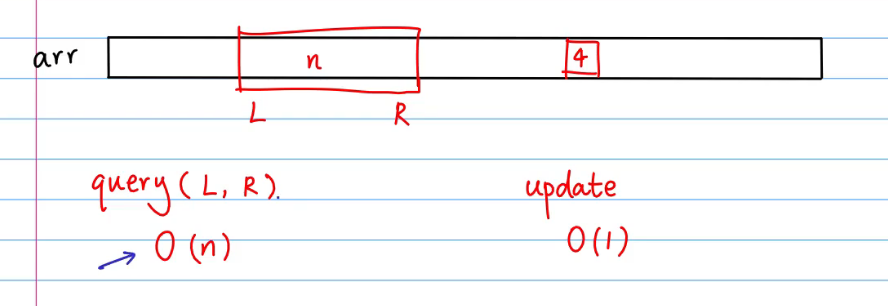 arr n 4
L R
query(L, R). update
O(n) O(1)